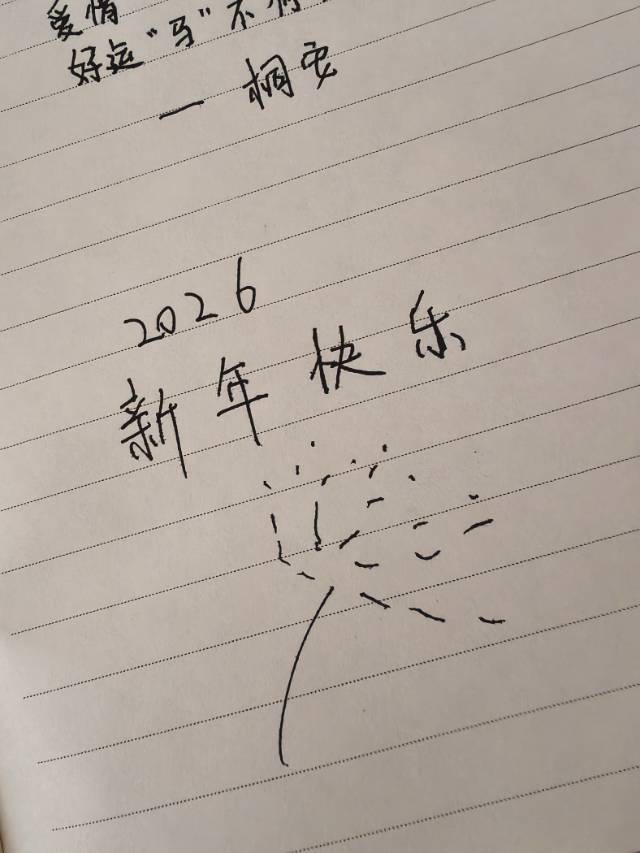 爱情
好运“马”不停
一 桐安
2026
新年快乐